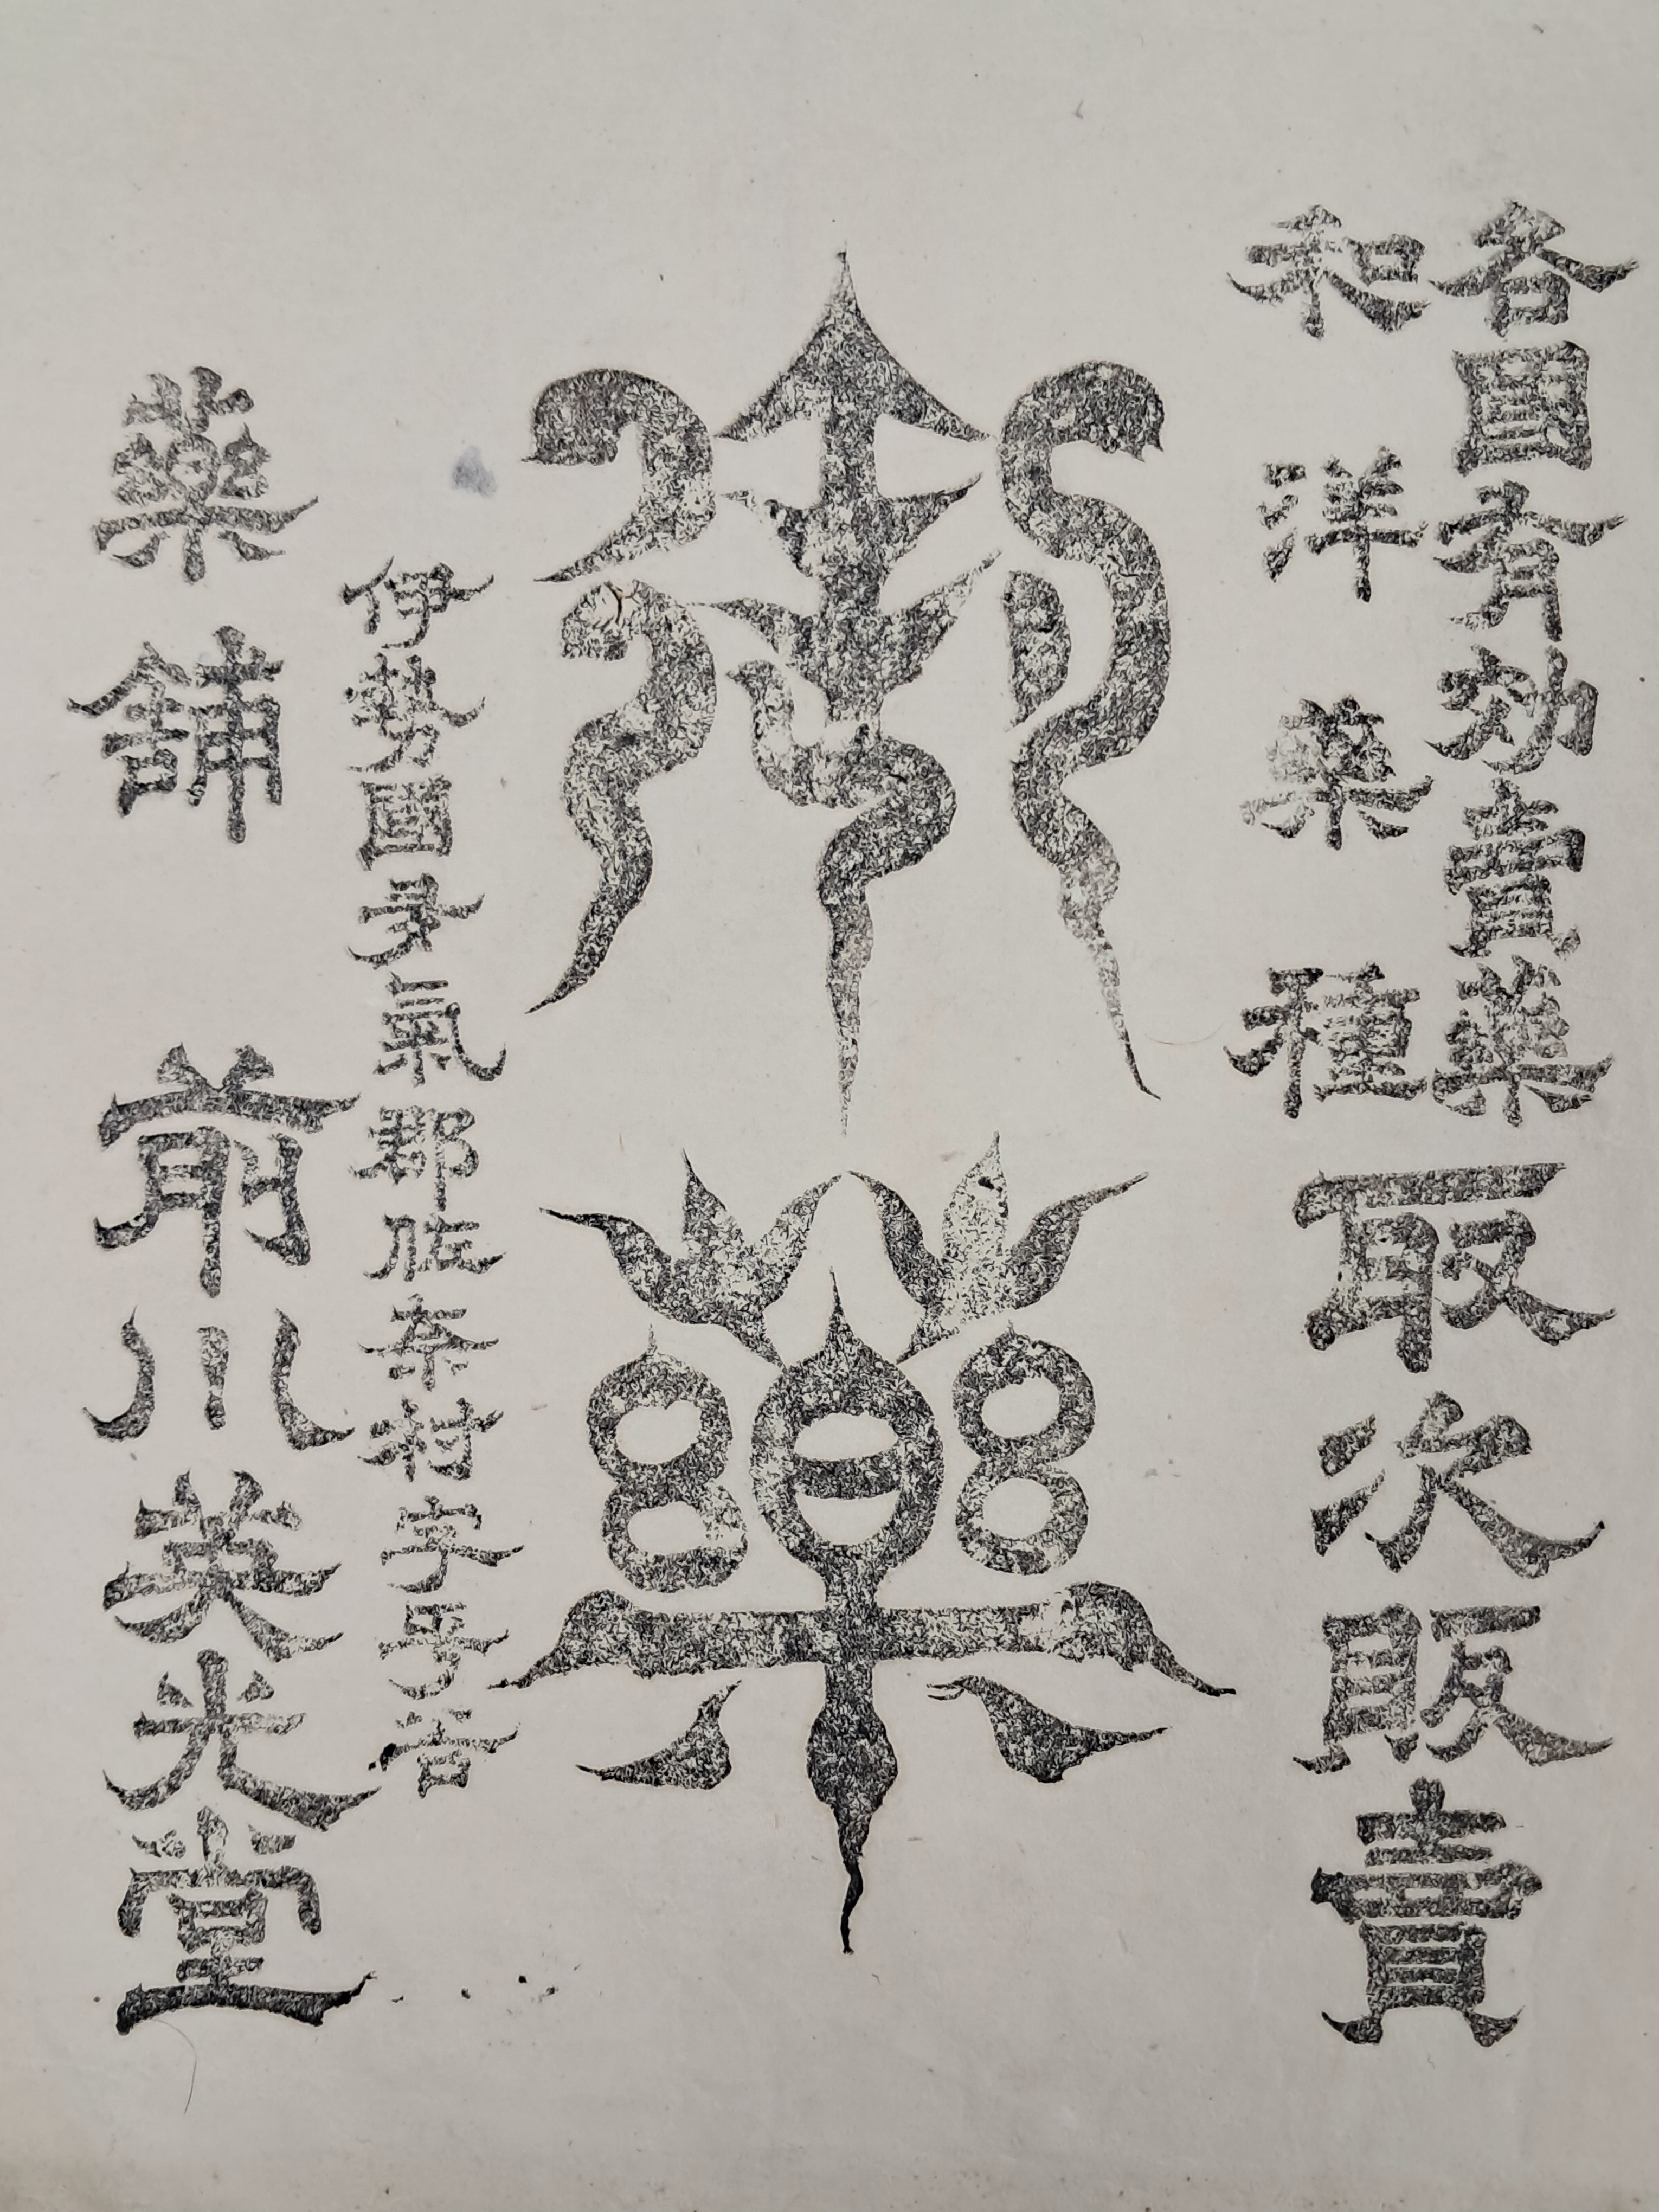 各國有効賣藥
和洋藥種
取次販賣
御藥
伊勢國多氣郡佐奈村字平谷
藥舖 前川英光堂